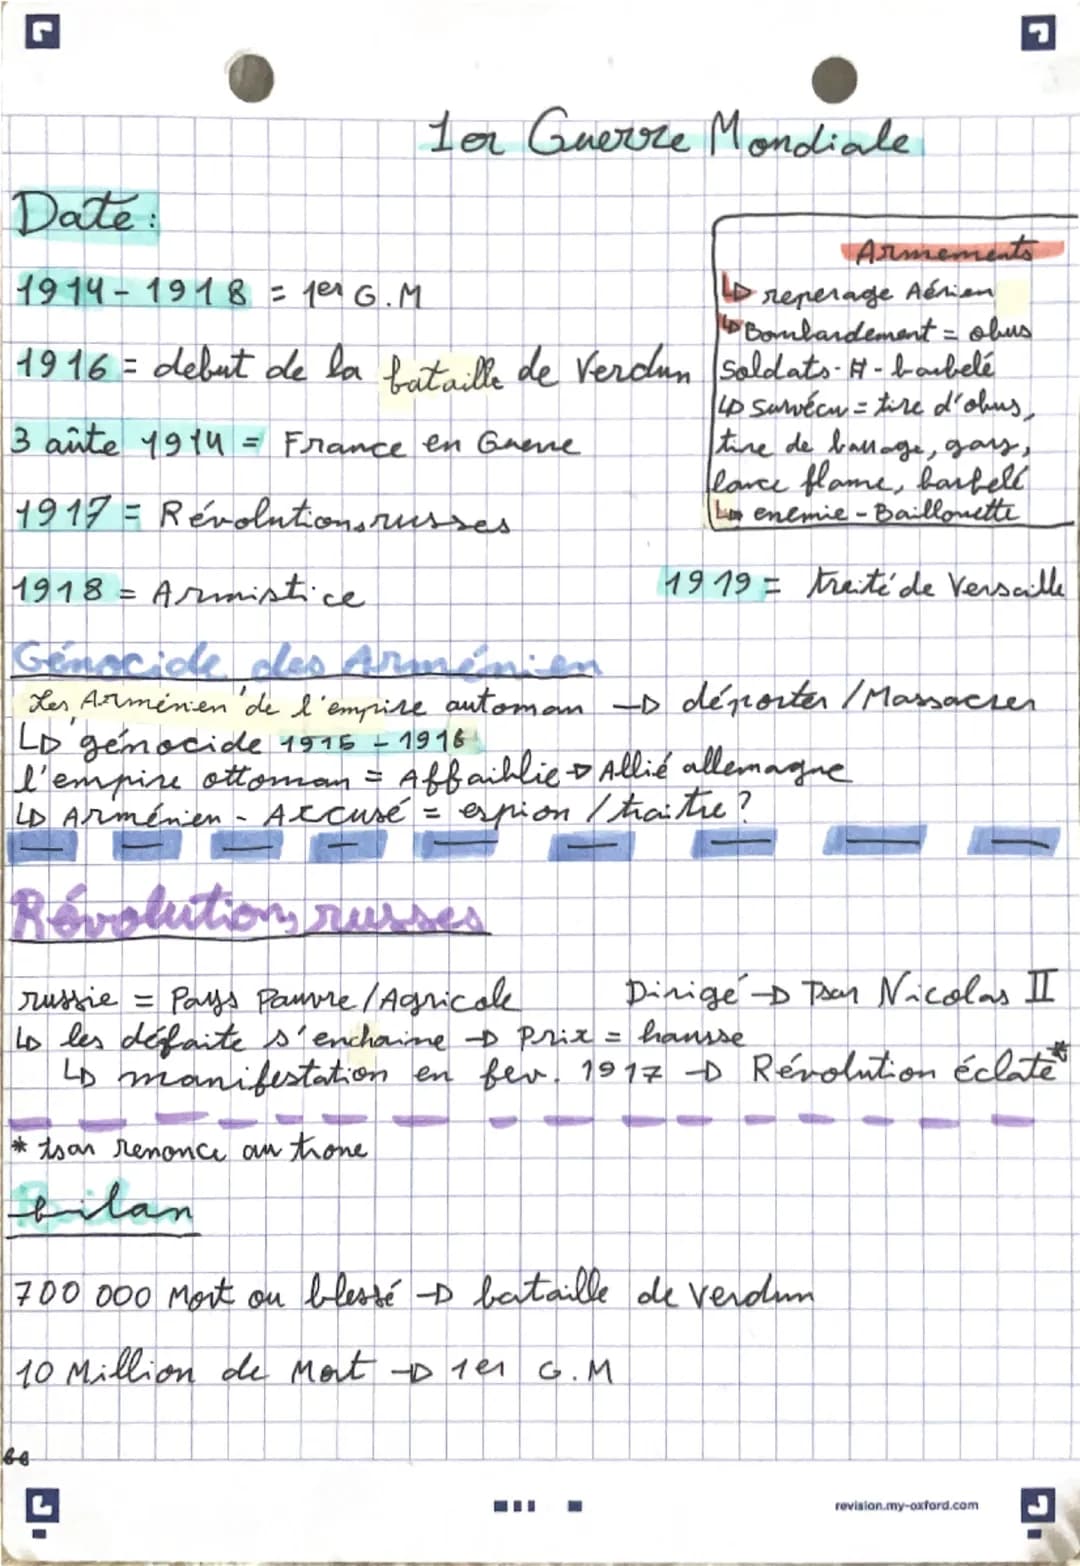 1er Guerre Mondiale
Date :
1914-1918 = 1er G.M
1916 = debut de la bataille de Verdun
3 aôute 1914 = France en Guerre
1917 = Révolutions russes
1918 = Armistice
1919 = traité de Versaille
Armements
↳ reperage Aérien
↳ Bombardement = obus
Soldats - # - barbelé
↳ Survécu = tire d'obus,
tire de barrage, gazs,
lance flame, barbelé
↳ enemie - Baillonette
Génocide des Arménien
Les Arménien de l'empire automan → déporter / Massacrer
↳ génocide 1915 - 1916
l'empire ottoman = Affaiblie → Allié allemagne
↳ Arménien - Accusé = espion / traitre ?
Révolutions russes
russie = Pays Pauvre / Agricole Dirigé → Tsar Nicolas II
↳ les défaite s'enchaine → Prix = hausse
↳ manifestation en fev. 1917 → Révolution éclate*
* tsar renonce au trone
bilan
700 000 Mort ou blessé → bataille de Verdun
10 Million de Mort → 1er G.M
revision.my-oxford.com